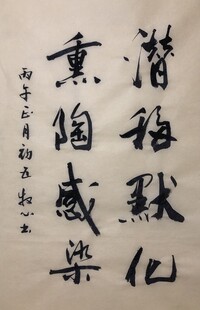 潜移默化
熏陶感染
丙午正月初五 牧心书